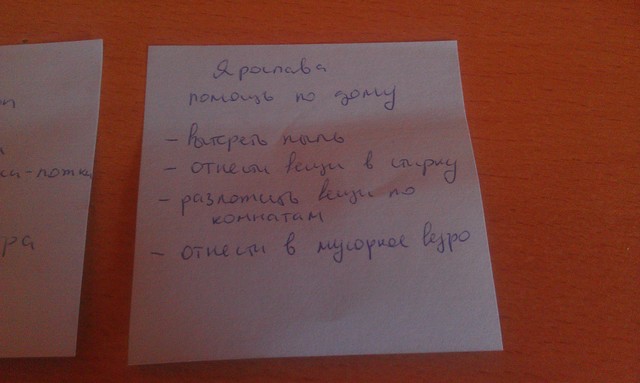 Ярослава
помощь по дому
- вытереть пыль
- отнести вещи в стирку
- разложить вещи по
комнатам
- отнести в мусорное ведро
ра